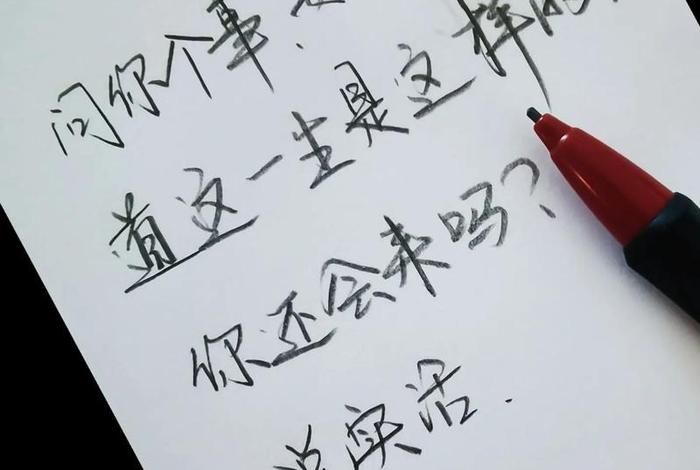 问你个事.
道这一生是这样
你还会来吗?
说实话.